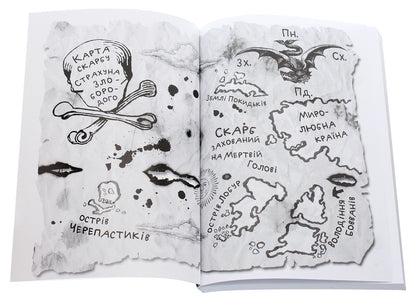 КАРТА
СКАРБУ
СТРАХУНА
ЗЛО-
БОРО-
ДОГО
ОСТРІВ
ЧЕРЕПАСТИКІВ
Пн.
Зх.
Сх.
Пд.
ЗЕМЛІ ПОКИДЬКІВ
СКАРБ
ЗАХОВАНИЙ
НА МЕРТВІЙ
ГОЛОВІ
МИРО-
ЛЮБНА
КРАЇНА
ОСТРІВ ЛОБУР
ВОЛОДІННЯ
БОВВАНІВ